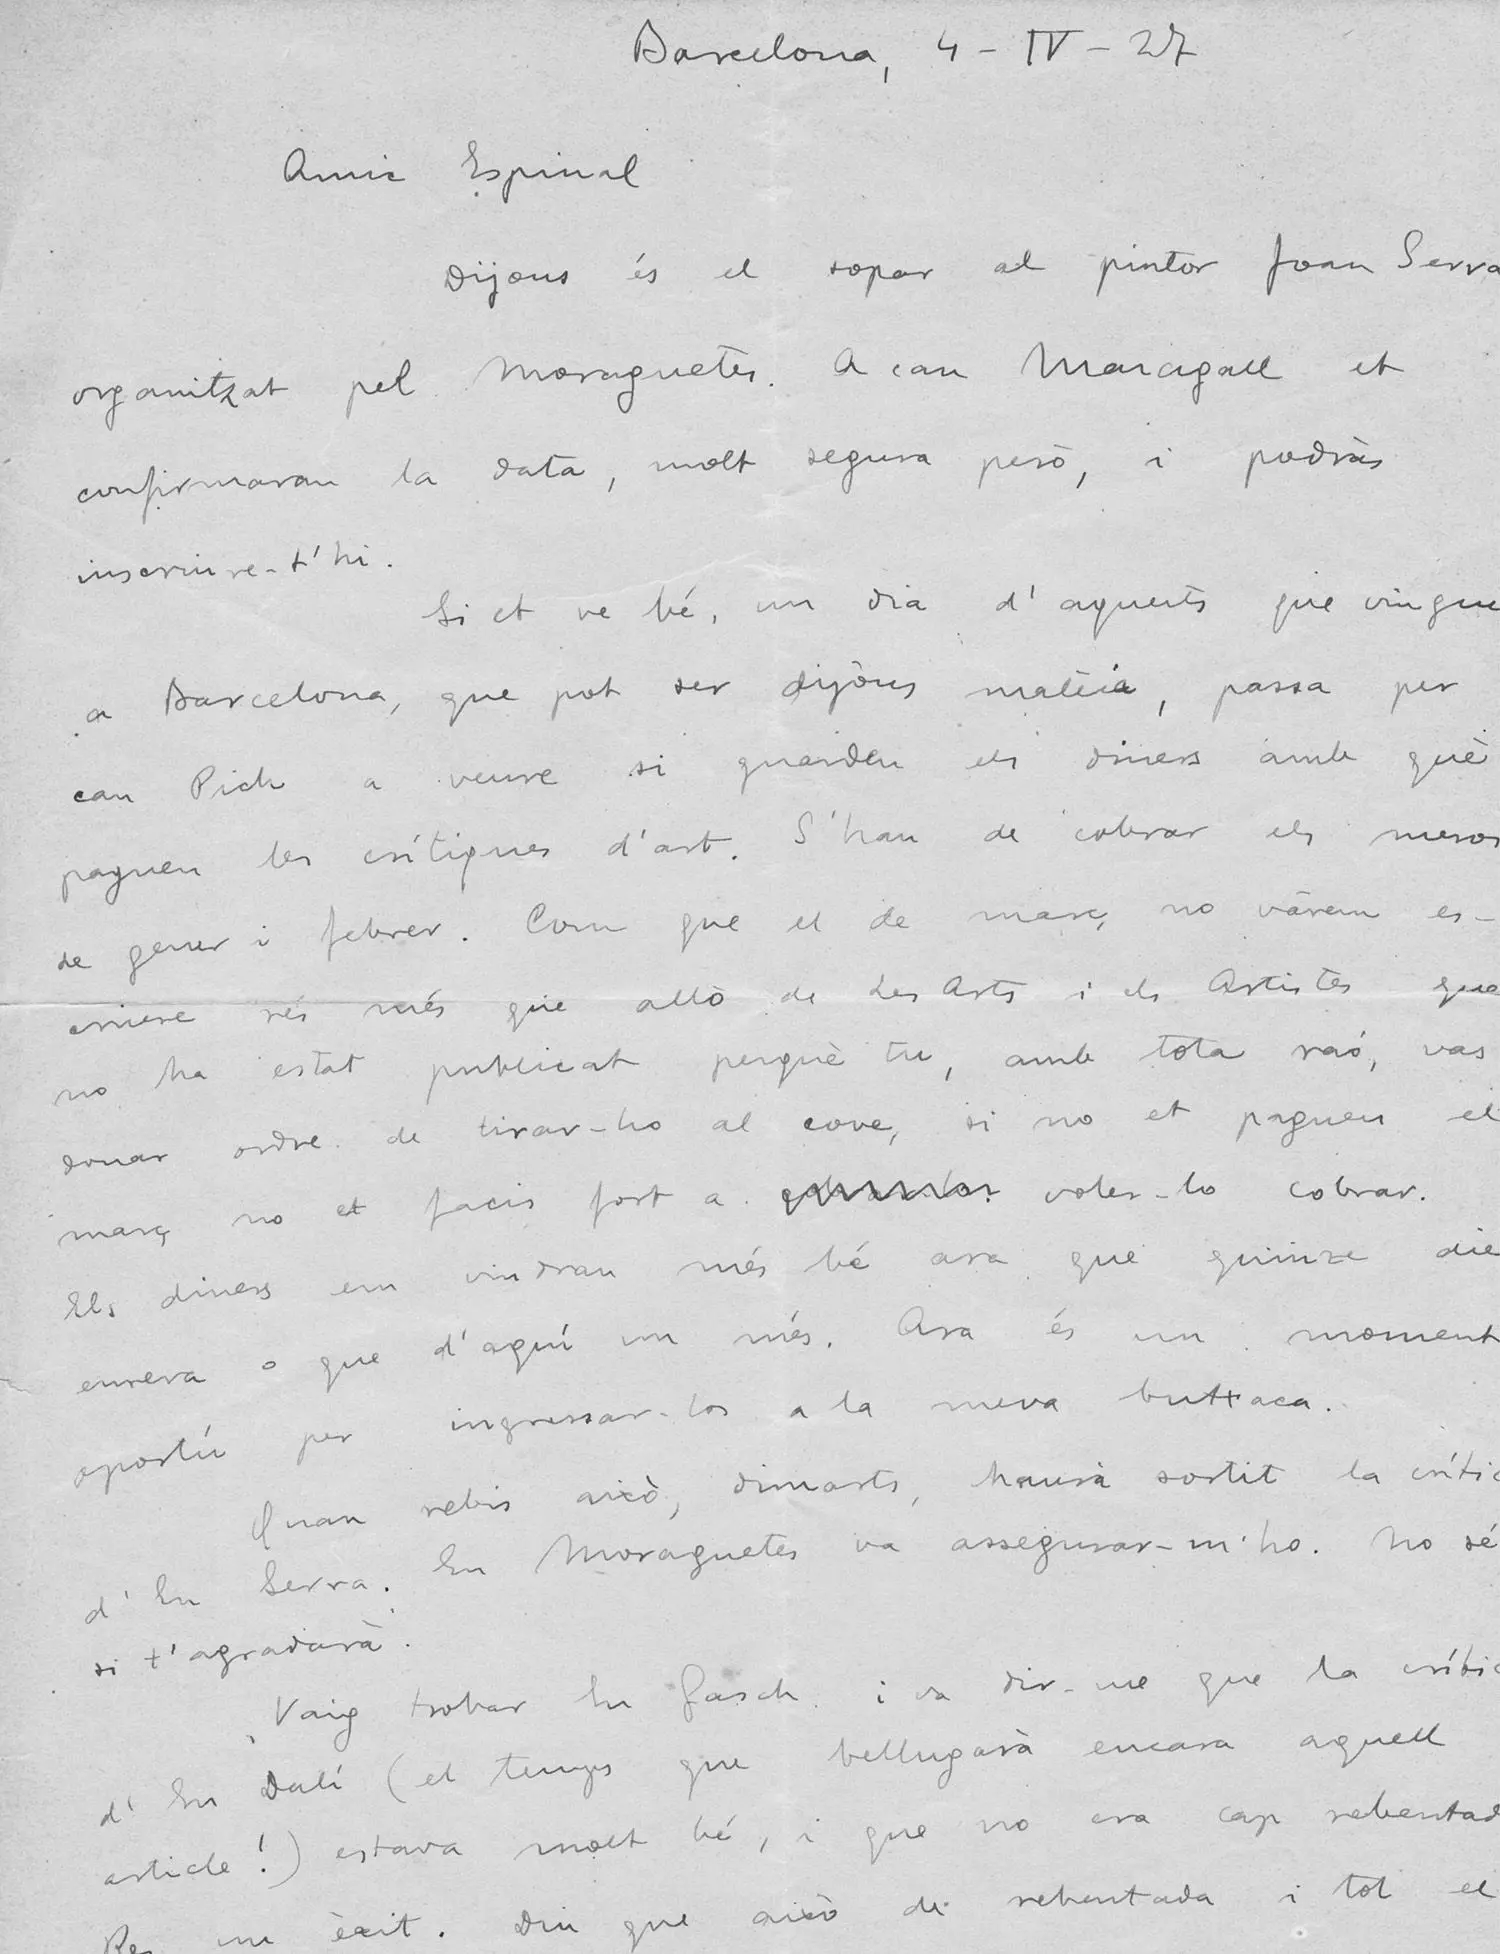 Barcelona, 4 - IV - 27
Amic Espinal
Dijous és el sopar al pintor Joan Serra
organitzat pel Moraguetes. A can Maragall et
confirmaran la data, molt segura però, i podràs
inscriure-t'hi.
Si et ve bé, un dia d'aquests que vingue
a Barcelona, que pot ser dijòus mateix, passa per
can Pich a veure si guarden els diners amb què
paguen les crítiques d'art. S'han de cobrar els mesos
de gener i febrer. Com que el de març no vàrem es-
criure rés més que allò de Les Arts i els Artistes que
no ha estat publicat perquè tu, amb tota raó, vas
donar ordre de tirar-ho al cove, si no et paguen el
març no et facis fort a voler-lo cobrar.
Els diners em vindran més bé ara que quinze die
enrera o que d'aquí un més. Ara és un moment
oportú per ingressar-los a la meva buttaca.
Quan rebis això, dimarts, haurà sortit la crític
d'En Serra. En Moraguetes va assegurar-m'ho. No sé
si t'agradarà.
Vaig trobar En Gasch i va dir-me que la crític
d'En Dalí (el temps que bellugarà encara aquell
article!) estava molt bé, i que no era cap rebentad
un èxit. Diu que això de rebentada i tot el